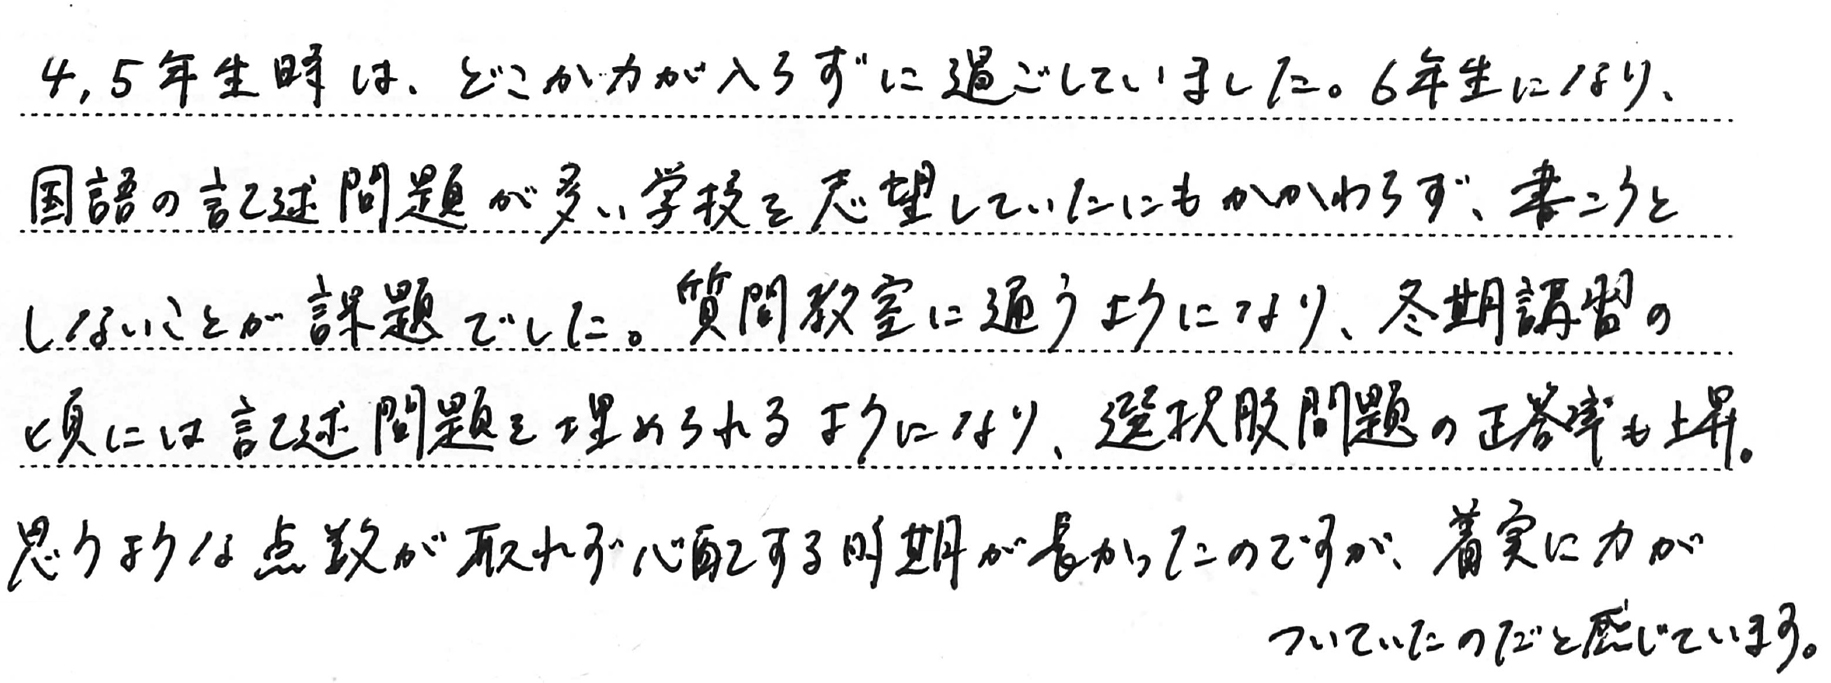 4,5年生時は、どこか力が入らずに過ごしていました。6年生になり、
国語の記述問題が多い学校を志望していたにもかかわらず、書こうと
しないことが課題でした。質問教室に通うようになり、冬期講習の
頃には記述問題を埋められるようになり、選択肢問題の正答率も上昇。
思うような点数が取れず心配する時期が長かったのですが、着実に力が
ついていたのだと感じています。